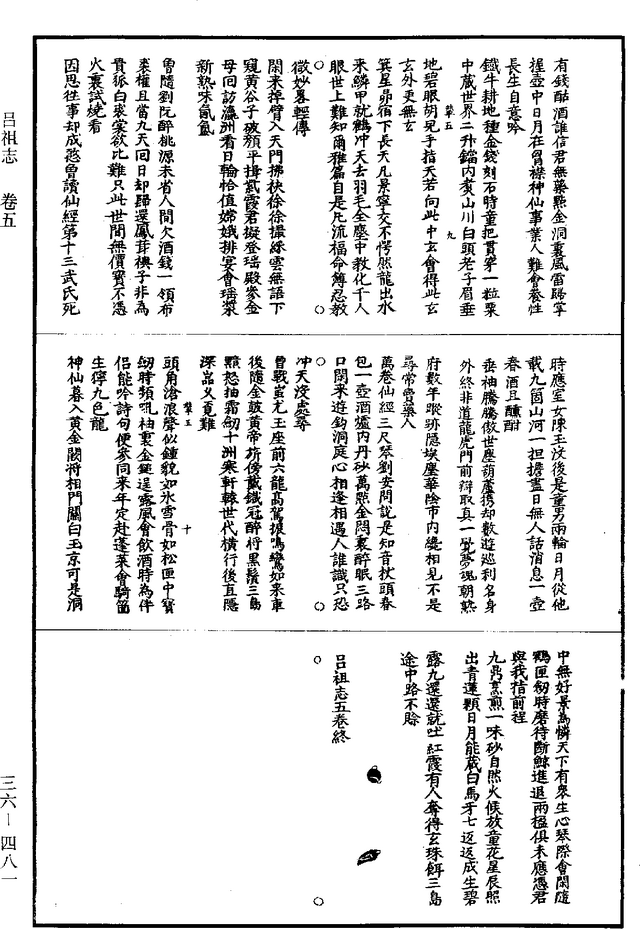 呂祖志 卷五
三六—四八一
有錢酤酒誰信君無藥點金洞裏風雷歸掌
握壺中日月在胷襟神仙事業人難會養性
長生自意吟
鐵牛耕地種金錢刻石時童把貫穿一粒粟
中藏世界二升鐺內煑山川白頭老子眉垂
地碧眼胡兒手指天若向此中玄會得此玄
玄外更無玄
箕星昴宿下長天凡景寧交不愕然龍出水
來鱗甲就鶴冲天去羽毛全塵中教化千人
眼世上難知爾雅篇自是凡流福命薄忍教
微妙畧輕傳
閑來掉臂入天門拂袂徐徐撮綵雲無語下
窺黃谷子破顏平揖紫霞君擬登瑶殿參金
母回訪瀛洲看日輪恰值嫦娥排宴會瑶漿
新熟味氤氳
曾隨劉阮醉桃源未省人間欠酒錢一領布
裘權且當九天回日却歸還鳳茸襖子非為
貴狐白裘裳欲比難只此世間無價寶不憑
火裏試燒看
因思往事却成憨曾讀仙經第十三武氏死
時應室女陳王没後是童男兩輪日月從他
載九箇山河一担擔盡日無人話消息一壺
春酒且醺酣
垂袖騰騰傲世塵葫蘆携却數遊巡利名身
外終非道龍虎門前辯取真一覺夢魂朝熟
府數年蹤跡隱埃塵華陰市內纔相見不是
尋常賣藥人
萬卷仙經三尺琴劉安問說是知音杖頭春
包一壺酒爐內丹砂萬點金悶裏醉眠三路
口閑來遊釣洞庭心相逢相遇人誰識只恐
冲天没處尋
曾戰蚩尤玉座前六龍高駕振鳴鸞如來車
後隨金鼓黃帝旂傍戴鐵冠醉捋黑鬚三島
黯怒抽霜劒十洲寒軒轅世代橫行後直隱
深嵓乂覓難
頭角滄浪聲似鍾貌如氷雪骨如松匣中寶
劒時頻吼袖裏金鎚逞露風會飲酒時為伴
侶能吟詩句便參同來年定赴蓬萊會騎箇
生獰九色龍
神仙暮入黃金闕將相門關白玉京可是洞
中無好景為憐天下有衆生心琴際會閑隨
鶴匣劒時磨待斷鯨進退兩楹俱未應憑君
與我指前程
九鼎烹煎一味砂自然火候放童花星辰照
出青蓮顆日月能藏白馬牙七返返成生碧
霧九還還就吐紅霞有人奪得玄珠餌三島
途中路不賖
呂祖志五卷終